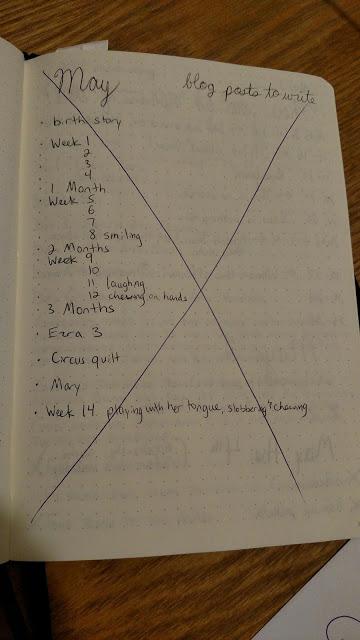 May
blog posts to write
· birth story
· Week 1
2
3
4
· 1 Month
· Week 5
6
7
8 smiling
· 2 Months
· Week 9
10
11 laughing
12 chewing on hands
· 3 Months
· Ezra 3
· Circus quilt
· Mary
· Week 14 playing with her tongue, slobbering & chewing